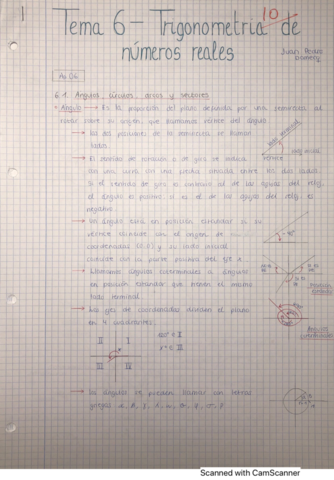 1
Tema 6 – Trigonometría de
10
números reales
Ac. 06
6.1. Ángulos, círculos, arcos y sectores
Ángulo → Es la proporción del plano definida por una semirecta al
rotar sobre su origen, que llamamos vértice del ángulo.
→ Las dos posiciones de la semirecta se llaman
lados.
→ El sentido de rotación o de giro se indica
con una curva con una flecha situada entre los dos lados.
Si el sentido de giro es contrario al de las agujas del reloj,
el ángulo es positivo, si es el de las agujas del reloj es
negativo.
→ Un ángulo está en posición estándar si su
vértice coincide con el origen de
coordenadas (0,0) y su lado inicial
coincide con la parte positiva del eje X.
→ Llamamos ángulos coterminales a ángulos
en posición estándar que tienen el mismo
lado terminal.
→ Los ejes de coordenadas dividen el plano
en 4 cuadrantes:
II I
III
→ Los ángulos se pueden llamar con letras
griegas
lado terminal
lado inicial
vértice
Ángulos
coterminales
Scanned with CamScanner